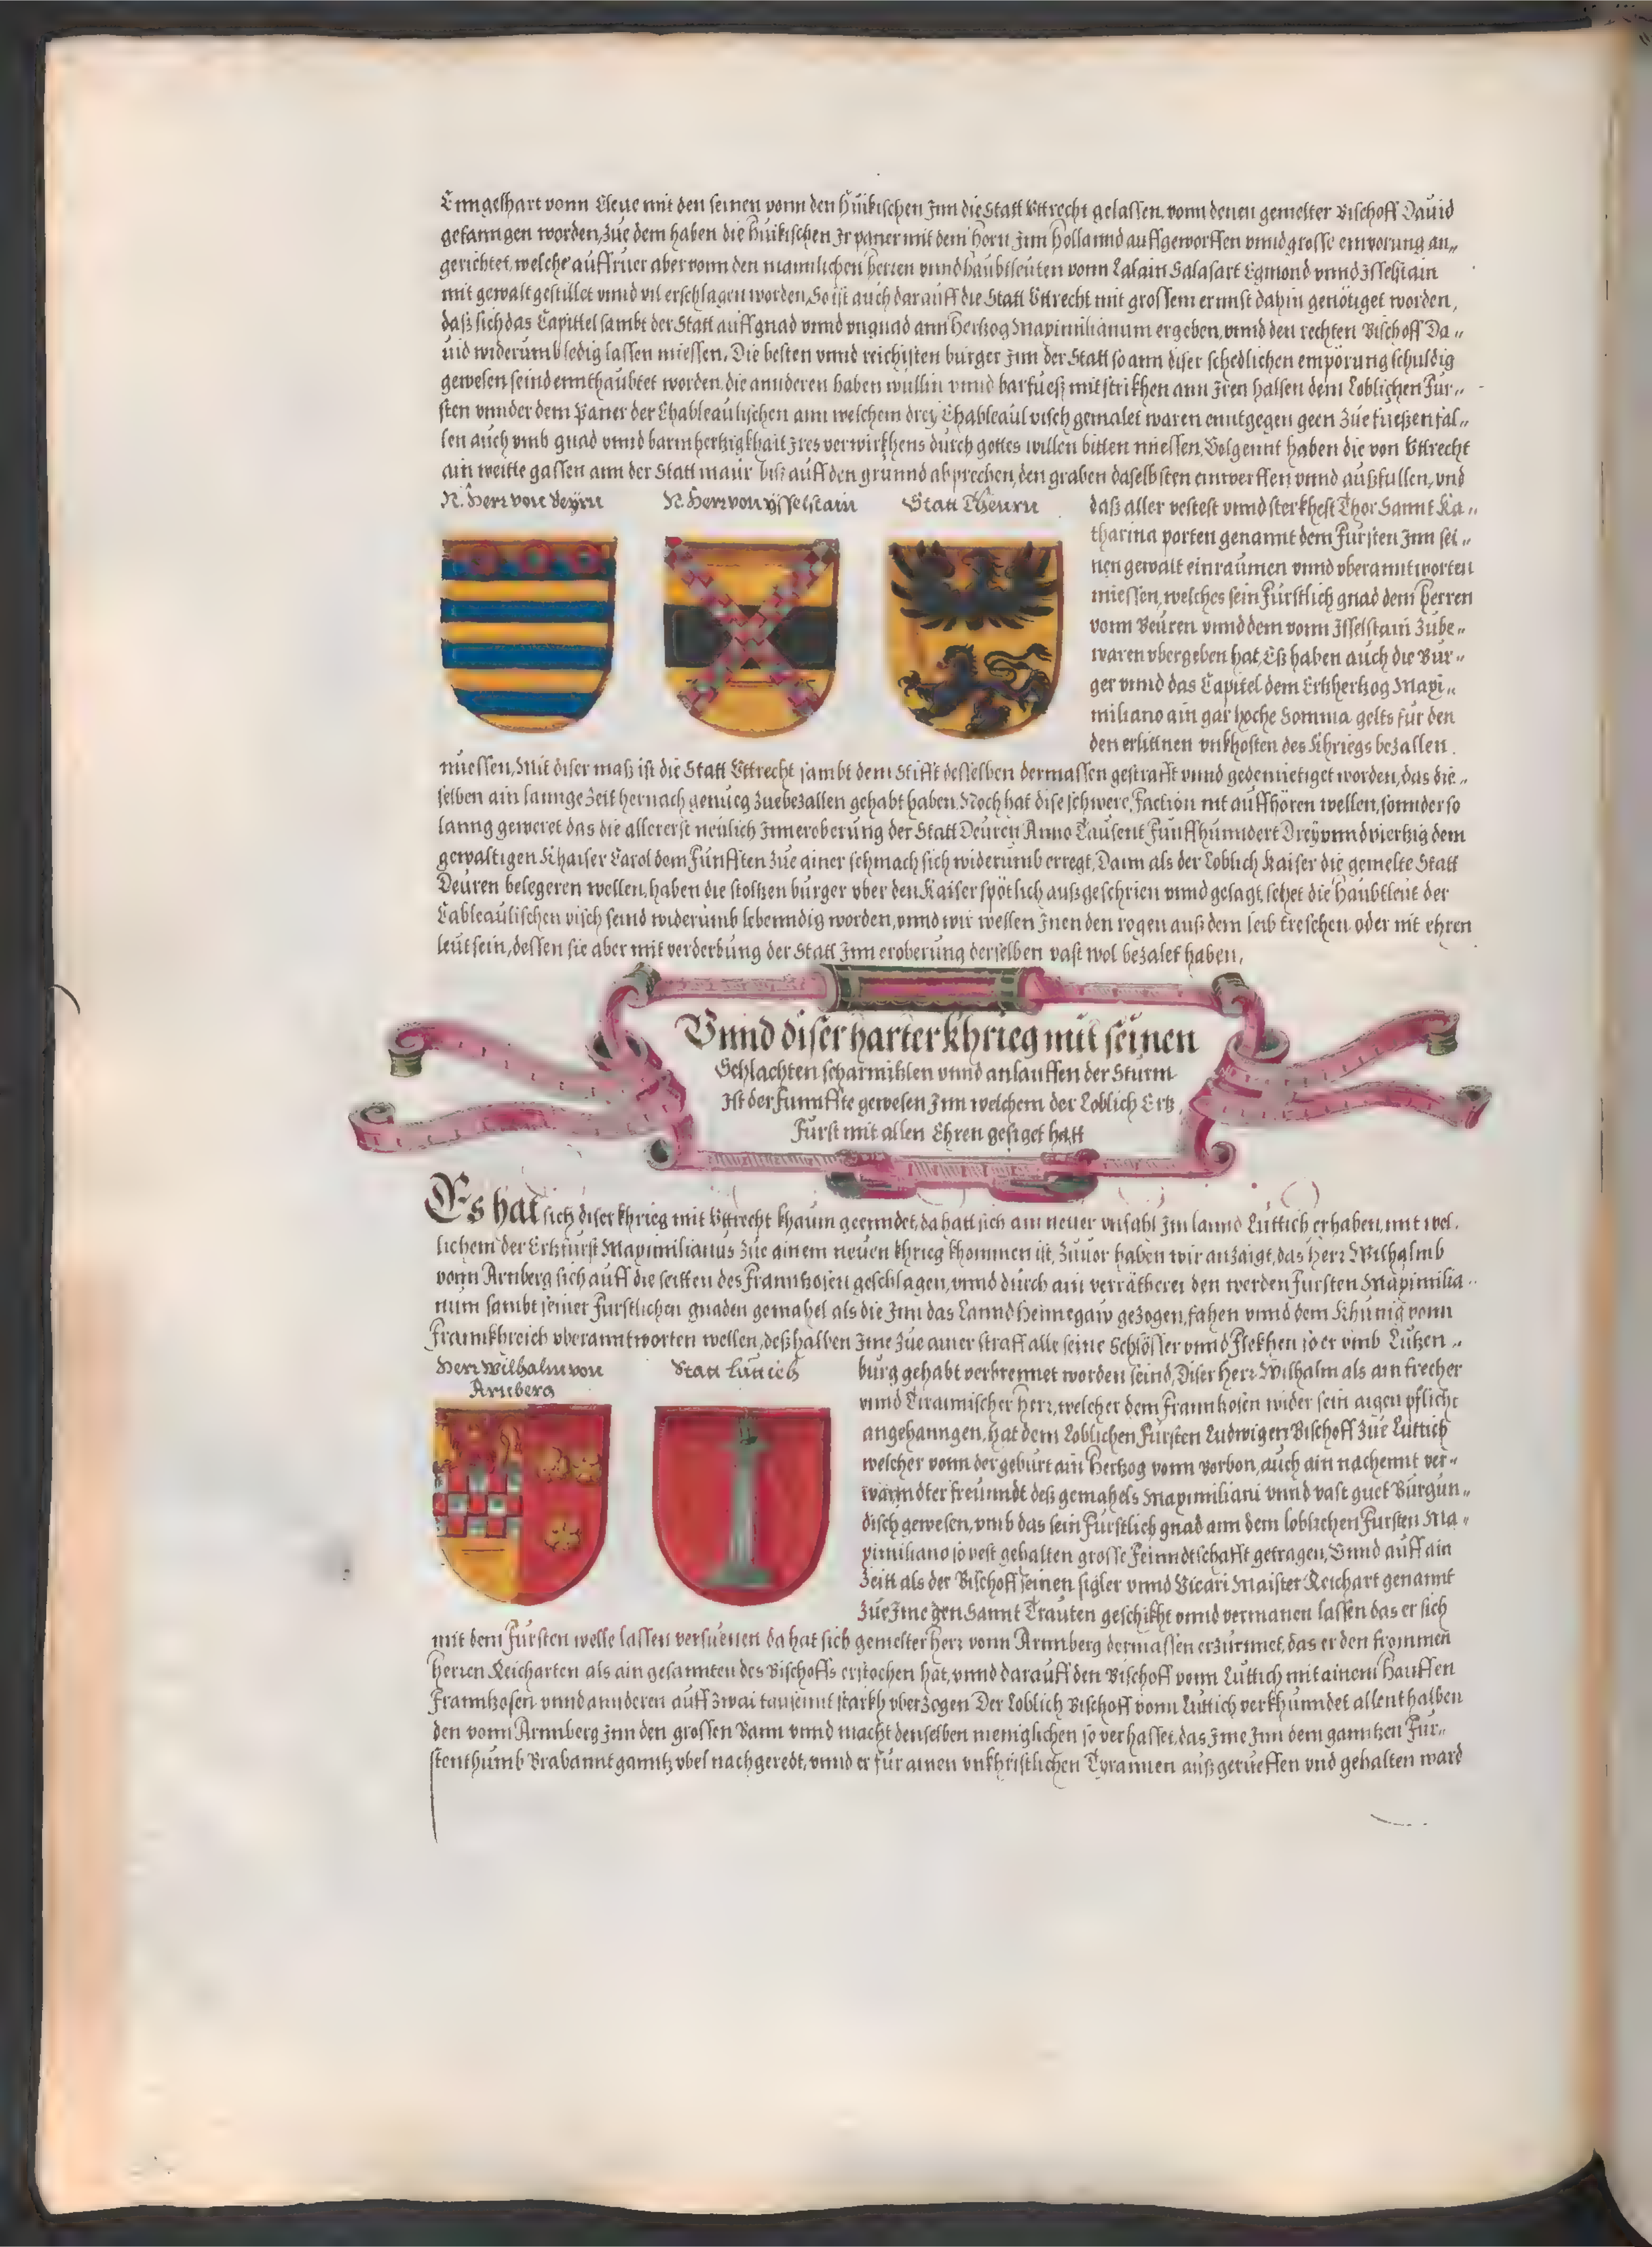 Enngelhart vonn Cleue mit den seinen vonn den Huikischen Inn die Statt Vttrecht gelassen, vonn denen gemelter Bischoff Dauid
gefanngen worden, zue dem haben die Huikischen Ir paner mit dem Horn Inn Hollannd auffgeworffen vnnd grosse emporung an„
gerichtet, welche auffruer aber vonn den mannlichen herren vnnd haubtleuten vonn Lalain Salasart Egmond vnnd Isselstain
mit gewalt gestillet vnnd vil erschlagen worden, So ist auch darauff die Statt Vttrecht mit grossem ernnst dahin genötiget worden,
daß sich das Capittel sambt der Statt auff gnad vnnd vngnad ann Hertzog Maximilianum ergeben, vnnd den rechten Bischoff Da„
uid widerumb ledig lassen miessen. Die besten vnnd reichisten burger Inn der Statt so ann diser schedlichen empörung schuldig
gewesen seind ennthaubtet worden, die annderen haben wullin vnnd barfuesz mit strikhen ann Iren halsen dem Loblichen Fur„
sten vnnder dem Paner der Chableaulischen ann welchem drey Chableaul visch gemalet waren enntgegen geen zue fueßen fal„
len auch vmb gnad vnnd barmhertzigkhait Ires verwirkhens durch gottes willen bitten miessen, Volgennt haben die von Vttrecht
ain weitte gassen ann der Statt maur biß auff den grunnd abprechen, den graben daselbsten einwerffen vnnd außfullen, vnd
N. Herr von Beyrn N. Herr von ysselstain Statt Theurn
daß aller vestest vnnd sterkhest Thor Sannt Ka„
tharina porten genannt dem Fursten Inn sei„
nen gewalt einraumen vnnd vberanntworten
miessen, welches sein Fürstlich gnad dem herren
vonn Beuren vnnd dem vonn Isselstain zube„
waren vbergeben hat, Eß haben auch die Bur„
ger vnnd das Capitel dem Ertzhertzog Maxi„
miliano ain gar hoche Somma gelts für den
den erlittnen vnkhosten des Khriegs bezallen
miessen, Mit diser maß ist die Statt Vttrecht sambt dem Stifft desselben dermassen gestrafft vnnd gedemietiget worden, das die„
selben ain lannge Zeit hernach genueg zuebezallen gehabt haben. Noch hat dise schwere, Faction nit auffhören wellen, sonnder so
lanng geweret das die allererst neulich Inn eroberung der Statt Deuren Anno Tausent Funffhunndert Drey vnnd viertzig dem
gewaltigen Khaiser Carol dem Fünfften zue ainer schmach sich widerumb erregt, Dann als der Loblich Kaiser die gemelte Statt
Deuren belegeren wellen, haben die stoltzen burger vber den Kaiser spötlich außgeschrien vnnd gesagt, sehet die Haubtleut der
Cableaulischen visch seind widerumb lebenndig worden, vnnd wir wellen Inen den rogen auß dem leib treschen oder nit ehren
leut sein, dessen sie aber mit verderbung der Statt Inn eroberung derselben vast wol bezalet haben.
Vnnd diser harter Khrieg mit seinen
Schlachten scharmitzlen vnnd anlauffen der Sturm
Ist der funnffte gewesen Inn welchem der Loblich Ertz
Furst mit allen Ehren gesiget hatt
Es hat sich diser khrieg mit Vttrecht khaum geenndet, da hatt sich ain neuer vnfahl Im lannd Luttich erhaben, mit wel„
lichem der Ertzfürst Maximilianus zue ainem neuen khrieg khommen ist, Zuuor haben wir anzaigt, das herr Wilhalmb
vonn Arnberg sich auff die seitten des Franntzosen geschlagen, vnnd durch ain verrätherei den werden Fursten Maximilia„
num sambt seiner Furstlichen gnaden gemahel als die Inn das Lannd Hennegaw gezogen, fahen vnnd dem Khunig vonn
Frannkhreich vberanntworten wellen, deßhalben Ime zue ainer straff alle seine Schlösser vnnd Flekhen so er vmb Lutzen„
Herr Wilhalm von Arnberg Statt Luttich
burg gehabt verbrennet worden seind, Diser herr Wilhalm als ain frecher
vnnd Tirannischer herr, welcher dem Franntzosen wider sein aigen pflicht
angehanngen, hat dem Loblichen Fursten Ludwigen Bischoff zue Luttich
welcher vonn der geburt ain Hertzog vonn vorbon, auch ain nachennt ver„
wanndter freunndt deß gemahels Maximiliani vnnd vast guet Burgun„
disch gewesen, vmb das sein Furstlich gnad ann dem loblichen Fursten Ma„
ximiliano so vest gehalten grosse Feinndtschafft getragen, Vnnd auff ain
Zeitt als der Bischoff seinen sigler vnnd Vicari Maister Reichart genannt
zue Ime gen Sannt Trauten geschikht vnnd vermanen lassen das er sich
mit dem Fursten welle lassen versuenen da hat sich gemelter herr vonn Arnnberg dermassen erzurnnet, das er den frommen
herren Reicharten als ain gesannten des Bischoffs erstochen hat, vnnd darauff den Bischoff vonn Luttich mit ainem Hauffen
Franntzosen vnnd annderen auff zwai tausennt starkh vberzogen Der Loblich Bischoff vonn Luttich verkhunndet allenthalben
den vonn Arnnberg Inn den grossen Bann vnnd macht denselben meniglichen so verhasset, das Ime Inn dem ganntzen Fur„
stenthumb Brabannt ganntz vbel nachgeredt, vnnd er für ainen vnkhristlichen Tyrannen außgerueffen vnd gehalten ward